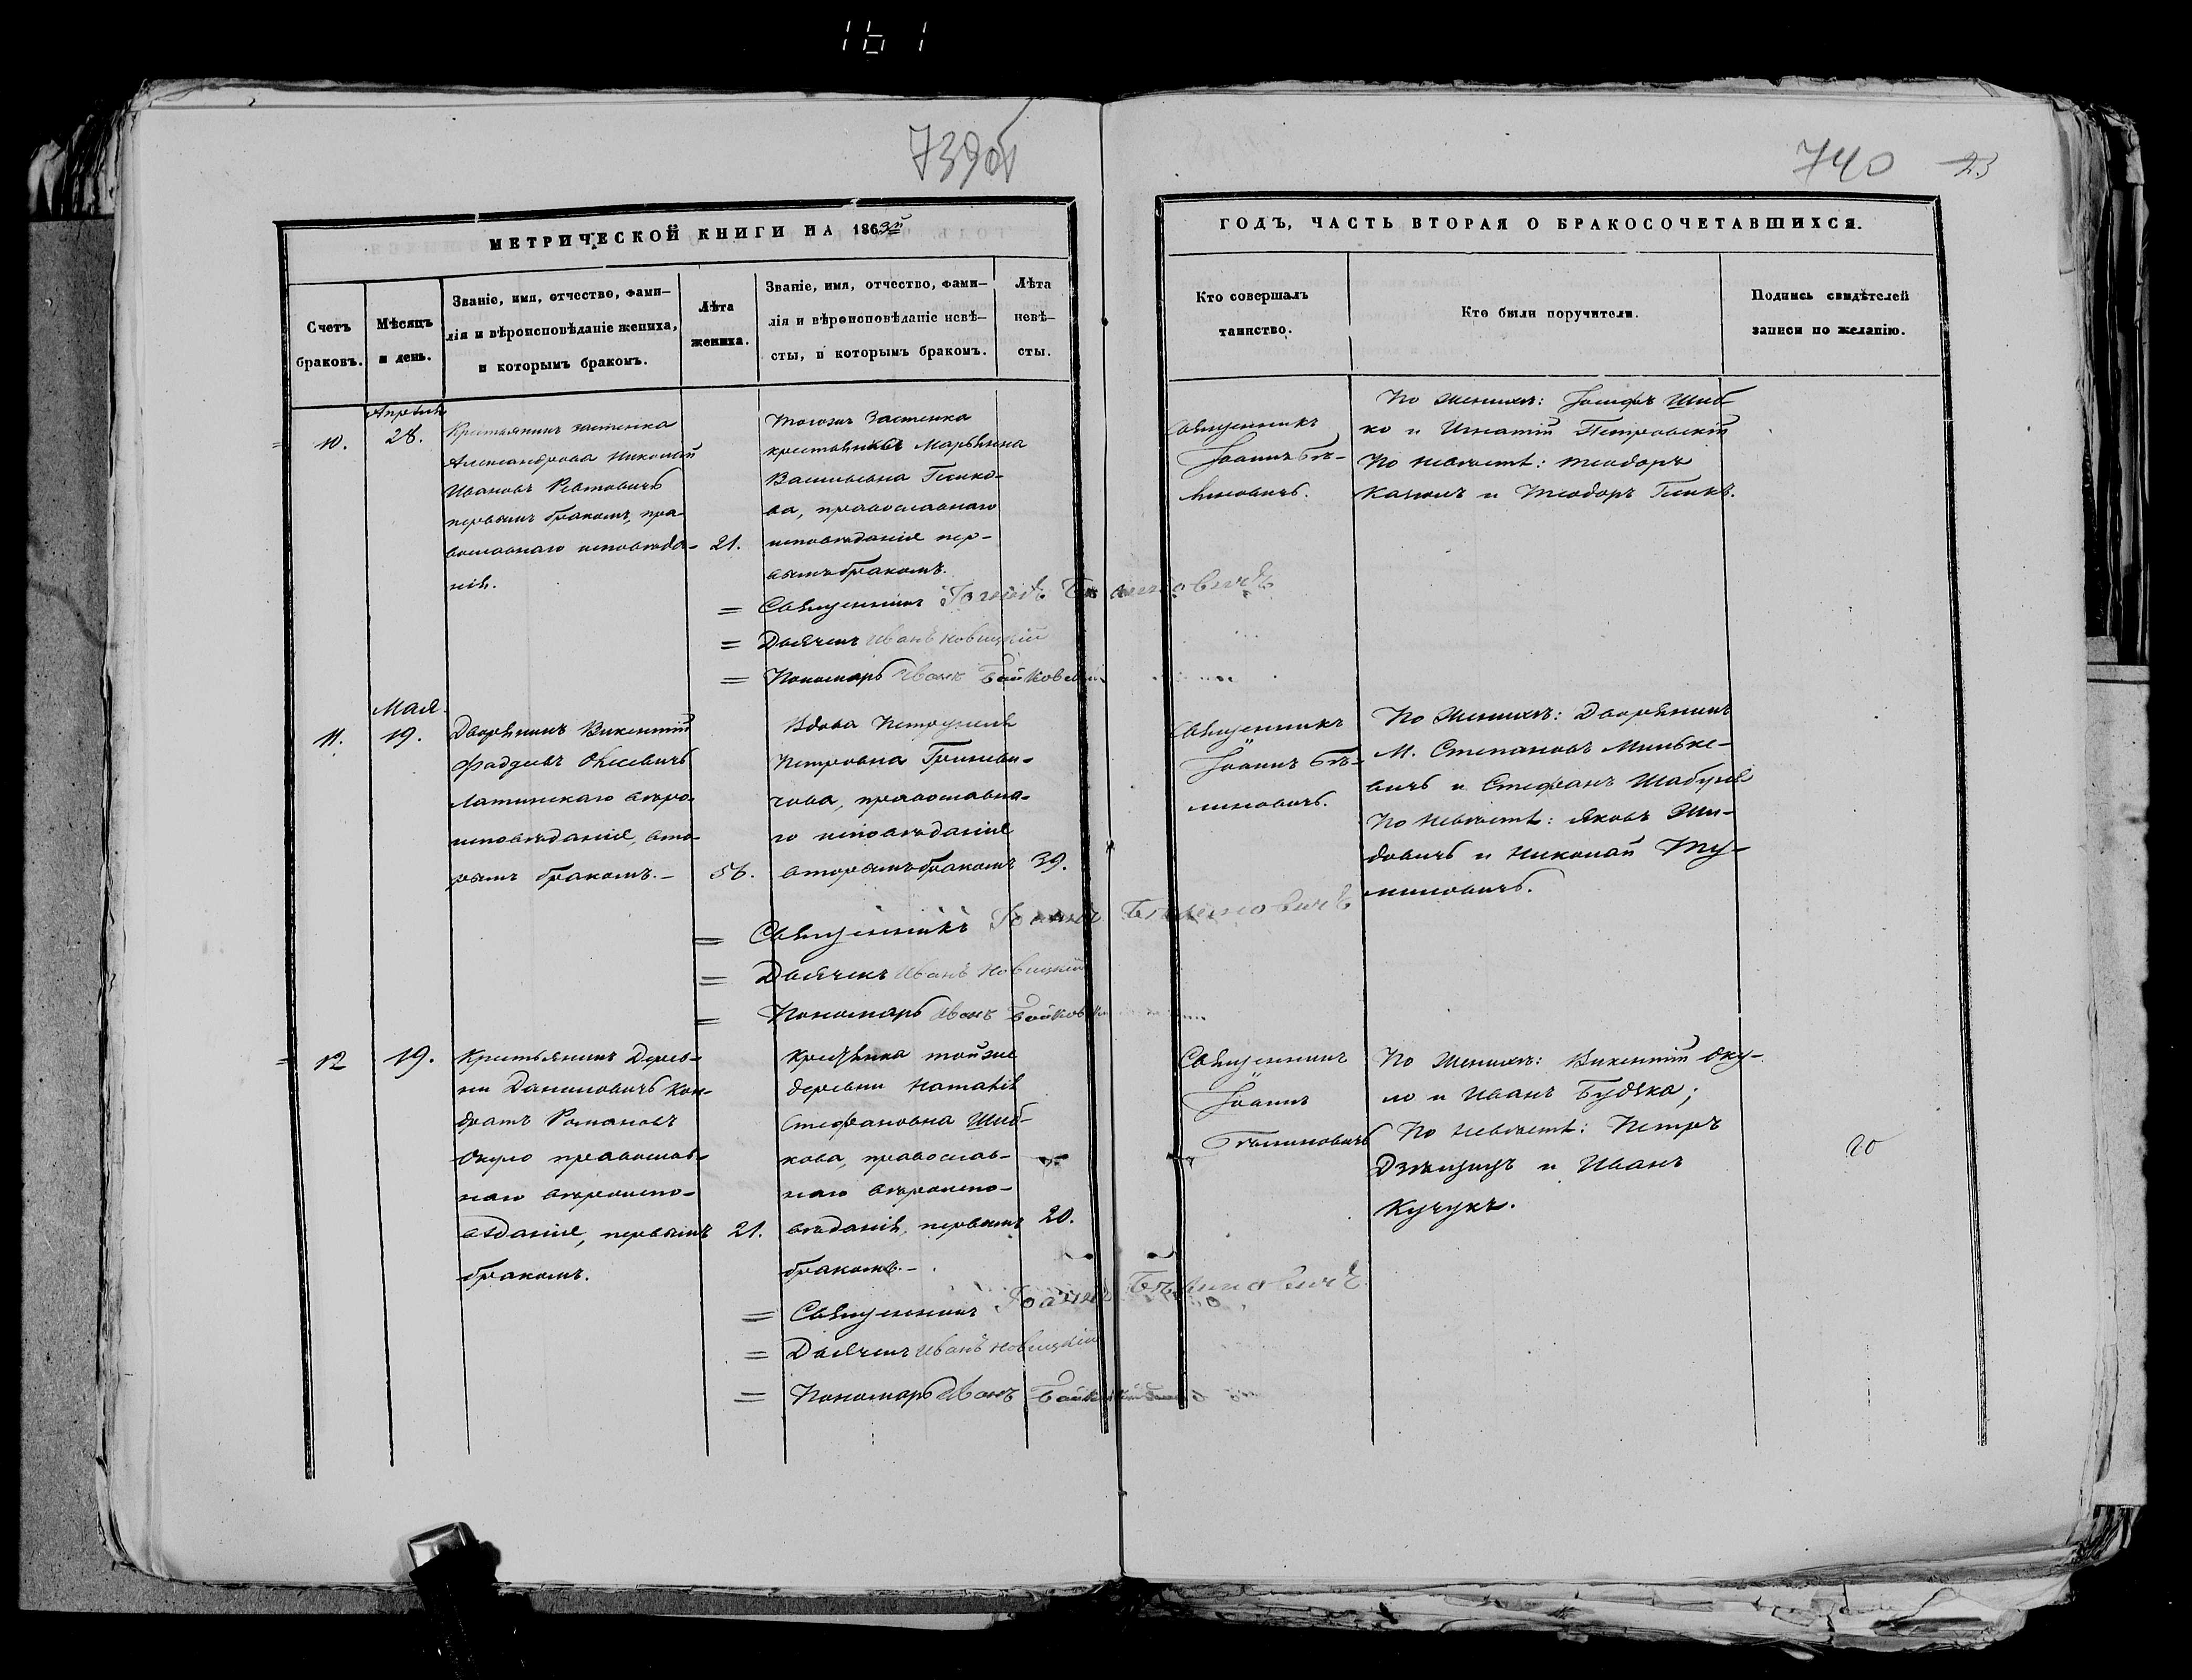 161
739об
740 23
МЕТРИЧЕСКОЙ КНИГИ НА 1863й
ГОДЪ, ЧАСТЬ ВТОРАЯ О БРАКОСОЧЕТАВШИХСЯ.
Счетъ
браковъ.
Мѣсяцъ
и день.
Званіе, имя, отчество, фами-
лія и вѣроисповѣданіе жениха,
и которымъ бракомъ.
Лѣта
жениха.
Званіе, имя, отчество, фами-
лія и вѣроисповѣданіе невѣ-
сты, и которымъ бракомъ.
Лѣта
невѣ-
сты.
Кто совершалъ
таинство.
Кто были поручители.
Подпись свидѣтелей
записи по желанію.
10.
Апрѣля
28.
Крестьянинъ застенка
Александрова Николай
Ивановъ
первымъ бракомъ, пра-
вославнаго исповѣда-
нія.
21.
Тогожъ Застенка
крестьянка Марьянна
Васильевна
ва, православнаго
исповѣданія пер-
вымъ бракомъ.
Священникъ
Іоаннъ Бѣ-
линовичъ.
По женихѣ: Іосифъ Шиб-
ко и Игнатій Петровскій
По невѣстѣ: Теодоръ
и Теодоръ
= Священникъ Іоаннъ Бѣлиновичъ
= Дьячекъ Иванъ Новицкій
= Пономарь Иванъ
11.
Мая
19.
Дворянинъ Викентій
Фаддеевъ
Латинскаго вѣро-
исповѣданія, вто-
рымъ бракомъ.-
56.
Вдова Петрунеля
Петровна Гриневи-
чова, православна-
го исповѣданія
вторымъ бракомъ
39.
Священникъ
Іоаннъ Бѣ-
линовичъ.
По женихѣ: Дворянинъ
М. Степановъ Миньке-
вичъ и Стефанъ Шабуня
По невѣстѣ: Яковъ Жи-
довичъ и Николай Ту-
миловичъ.
= Священникъ Іоаннъ Бѣлиновичъ
= Дьячекъ Иванъ Новицкій
= Пономарь Иванъ
12
19.
Крестьянинъ Дерев-
ни Даниловичъ Кон-
дратъ Романовъ
Окуло православ-
наго вѣроиспо-
вѣданія, первымъ
бракомъ.
21.
Крестьянка тойже
деревни Наталія
Стефановна Шиб-
кова, православ-
наго вѣроиспо-
вѣданія, первымъ
бракомъ.-
20.
Священникъ
Іоаннъ
Бѣлиновичъ
По женихѣ: Викентій Оку-
ло и Иванъ Будька;
По невѣстѣ: Петръ
и Иванъ
Кучукъ.
20
= Священникъ Іоаннъ Бѣлиновичъ
= Дьячекъ Иванъ Новицкій
= Пономарь Иванъ